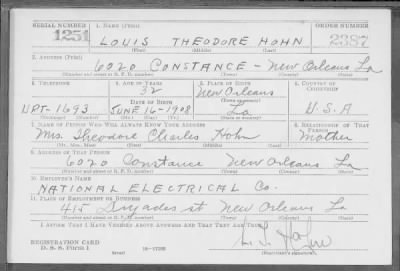 SERIAL NUMBER 1. NAME (Print) ORDER NUMBER
1251 LOUIS THEODORE HOHN 2387
(First) (Middle) (Last)
2. ADDRESS (Print)
6020 CONSTANCE - New Orleans La
(Number and street or R. F. D. number) (Town) (County) (State)
3. TELEPHONE 4. AGE IN YEARS 5. PLACE OF BIRTH 6. COUNTRY OF CITIZENSHIP
32 New Orleans
DATE OF BIRTH (Town or county)
UPT-1693 JUNE 16-1908 La U.S.A
(Exchange) (Number) (Mo.) (Day) (Yr.) (State or country)
7. NAME OF PERSON WHO WILL ALWAYS KNOW YOUR ADDRESS 8. RELATIONSHIP OF THAT PERSON
Mrs. Theodore Charles Hohn Mother
(Mr., Mrs., Miss) (First) (Middle) (Last)
9. ADDRESS OF THAT PERSON
6020 Constance New Orleans La
(Number and street or R. F. D. number) (Town) (County) (State)
10. EMPLOYER'S NAME
NATIONAL ELECTRICAL Co.
11. PLACE OF EMPLOYMENT OR BUSINESS
415 Dryades st New Orleans La
(Number and street or R. F. D. number) (Town) (County) (State)
I AFFIRM THAT I HAVE VERIFIED ABOVE ANSWERS AND THAT THEY ARE TRUE.
REGISTRATION CARD
D. S. S. Form 1 (over) 16-17105 (Registrant's signature)